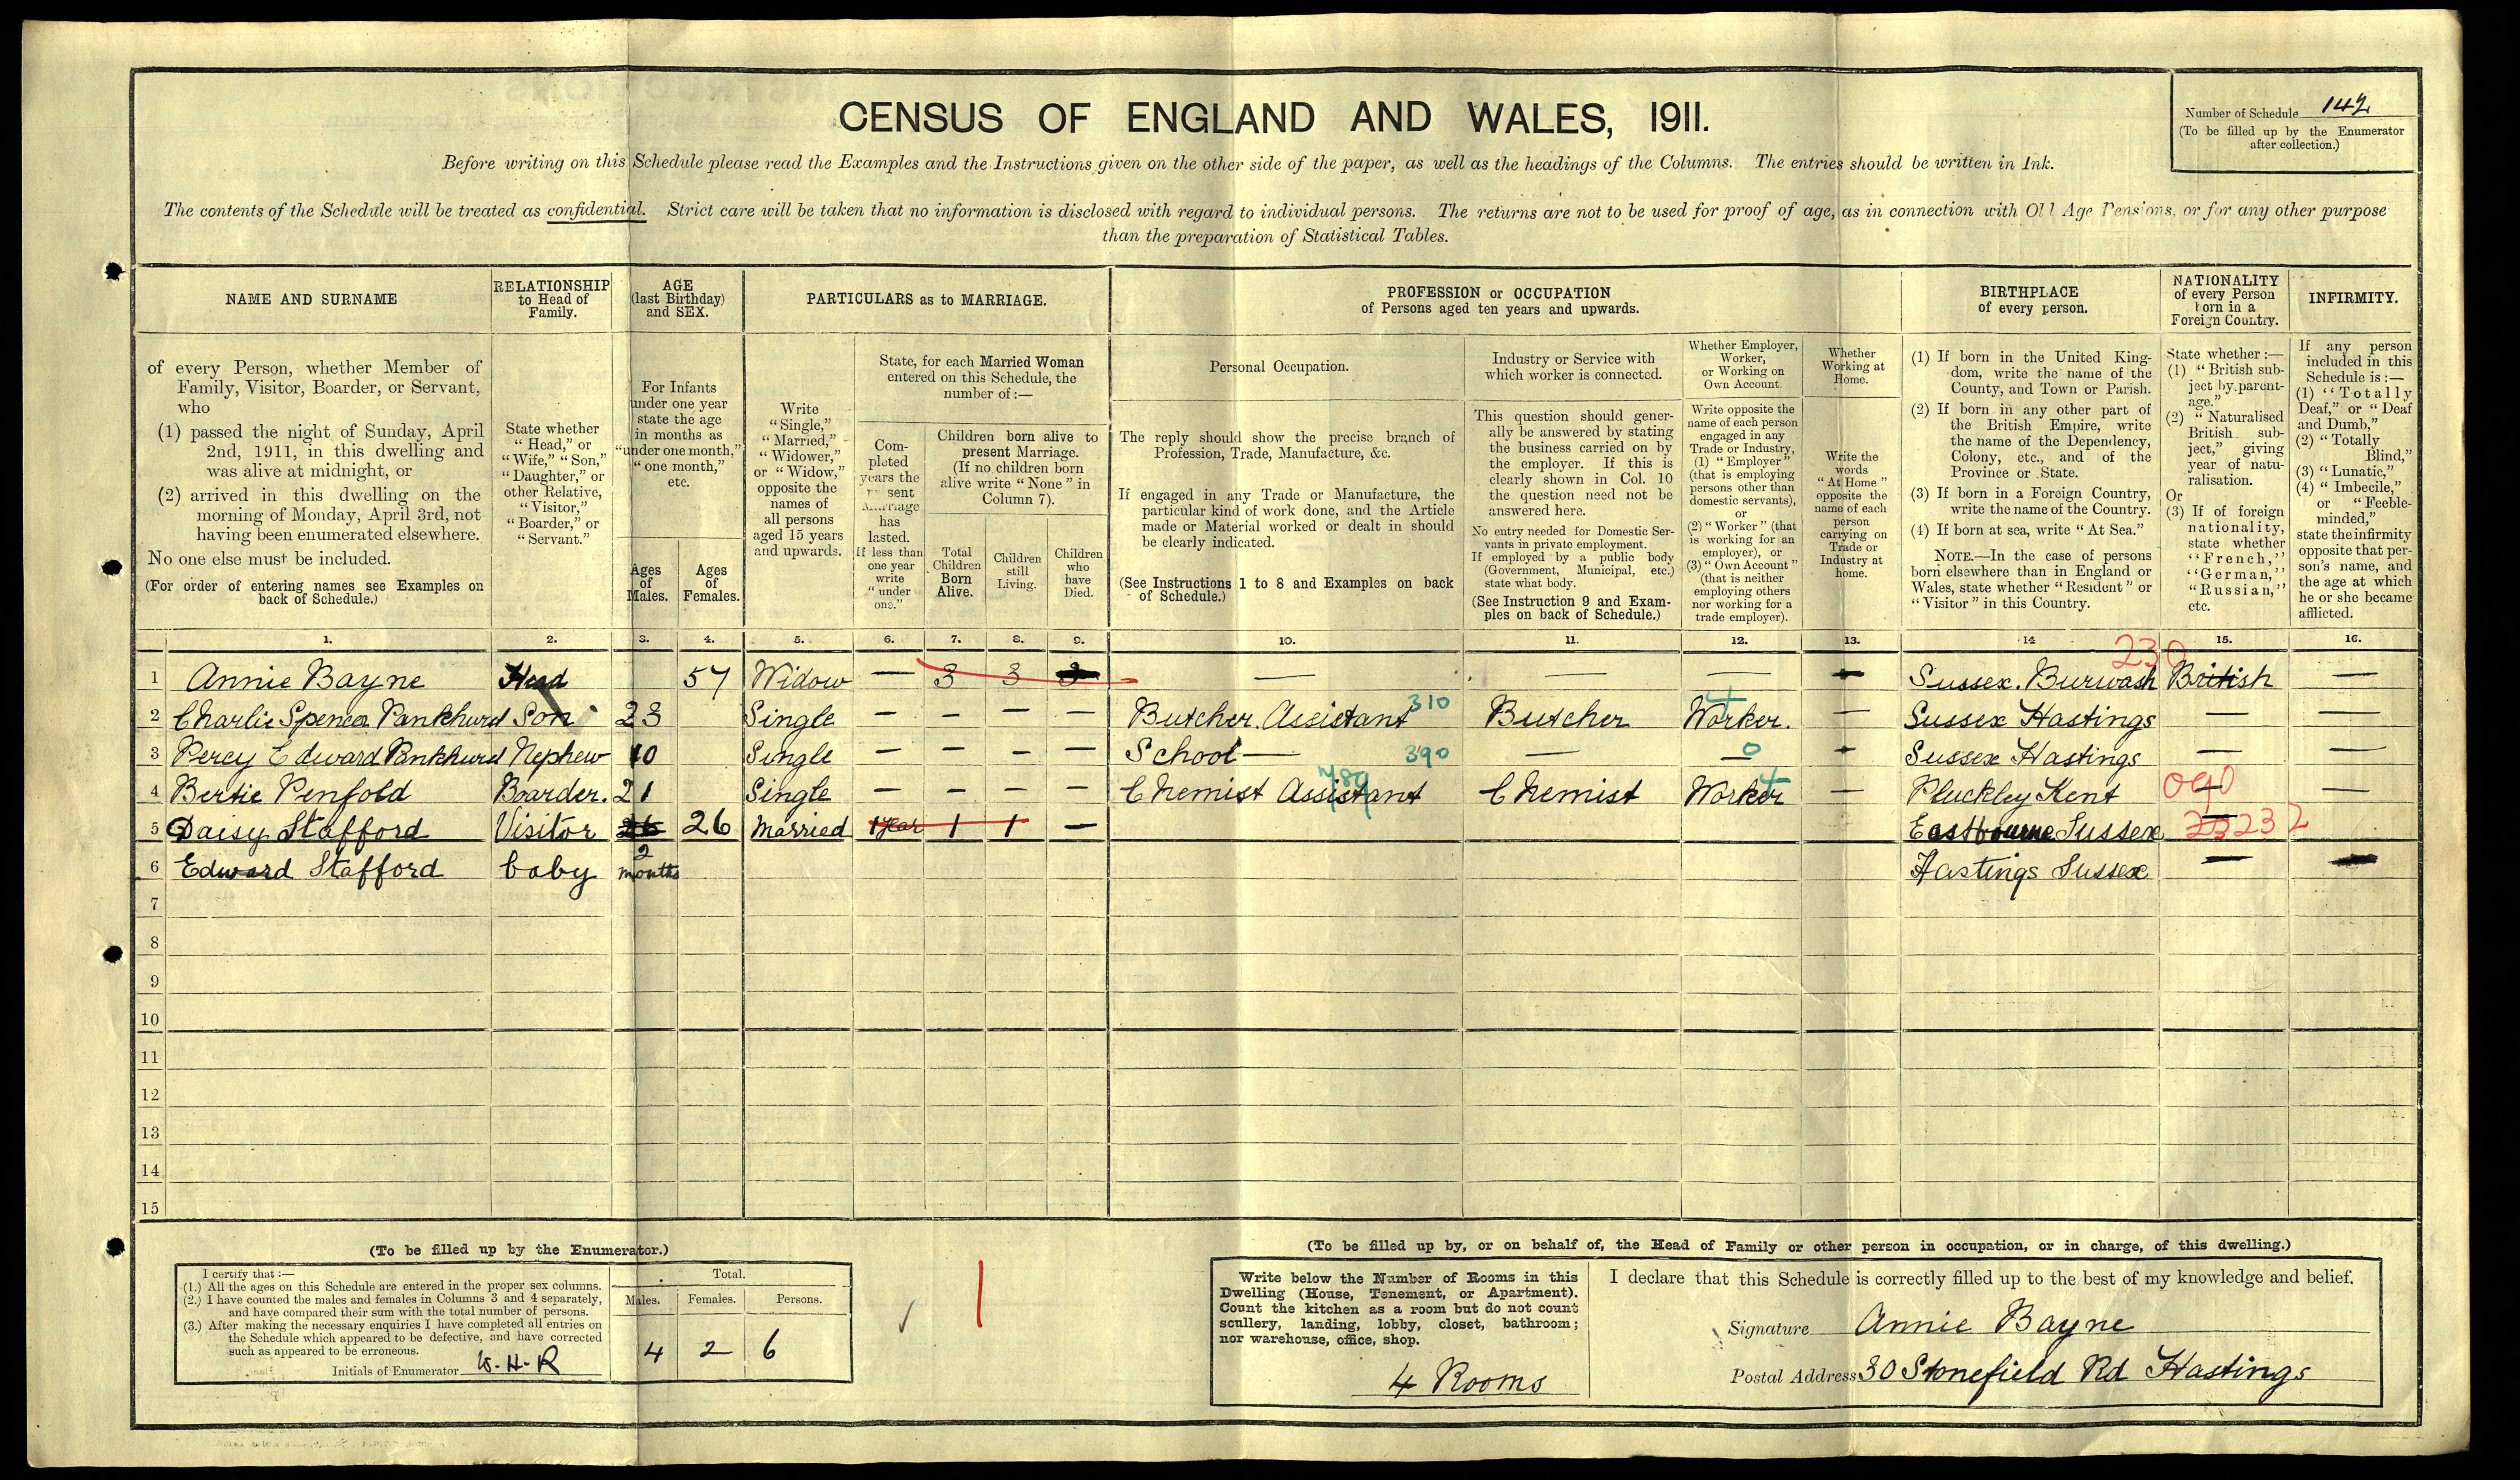 CENSUS OF ENGLAND AND WALES, 1911.
Number of Schedule 142
(To be filled up by the Enumerator
after collection.)
Before writing on this Schedule please read the Examples and the Instructions given on the other side of the paper, as well as the headings of the Columns. The entries should be written in Ink.
The contents of the Schedule will be treated as confidential. Strict care will be taken that no information is disclosed with regard to individual persons. The returns are not to be used for proof of age, as in connection with Old Age Pensions, or for any other purpose
than the preparation of Statistical Tables.
NAME AND SURNAME
RELATIONSHIP
to Head of
Family.
AGE
(last Birthday)
and SEX.
PARTICULARS as to MARRIAGE.
PROFESSION or OCCUPATION
of Persons aged ten years and upwards.
BIRTHPLACE
of every person.
NATIONALITY
of every Person
born in a
Foreign Country.
INFIRMITY.
of every Person, whether Member of
Family, Visitor, Boarder, or Servant,
who
(1) passed the night of Sunday, April
2nd, 1911, in this dwelling and
was alive at midnight, or
(2) arrived in this dwelling on the
morning of Monday, April 3rd, not
having been enumerated elsewhere.
No one else must be included.
(For order of entering names see Examples on
back of Schedule.)
State whether
"Head," or
"Wife," "Son,"
"Daughter," or
other Relative,
"Visitor,"
"Boarder," or
"Servant."
For Infants
under one year
state the age
in months as
"under one month,"
"one month,"
etc.
Ages
of
Males.
Ages
of
Females.
Write
"Single,"
"Married,"
"Widower,"
or "Widow,"
opposite the
names of
all persons
aged 15 years
and upwards.
State, for each Married Woman
entered on this Schedule, the
number of:—
Com-
pleted
years the
present
Marriage
has
lasted.
If less than
one year
write
"under
one."
Children born alive to
present Marriage.
(If no children born
alive write "None" in
Column 7).
Total
Children
Born
Alive.
Children
still
Living.
Children
who
have
Died.
Personal Occupation.
The reply should show the precise branch of
Profession, Trade, Manufacture, &c.
If engaged in any Trade or Manufacture, the
particular kind of work done, and the Article
made or Material worked or dealt in should
be clearly indicated.
(See Instructions 1 to 8 and Examples on back
of Schedule.)
Industry or Service with
which worker is connected.
This question should gener-
ally be answered by stating
the business carried on by
the employer. If this is
clearly shown in Col. 10
the question need not be
answered here.
No entry needed for Domestic Ser-
vants in private employment.
If employed by a public body
(Government, Municipal, etc.)
state what body.
(See Instruction 9 and Exam-
ples on back of Schedule.)
Whether Employer,
Worker,
or Working on
Own Account.
Write opposite the
name of each person
engaged in any
Trade or Industry,
(1) "Employer"
(that is employing
persons other than
domestic servants),
or
(2) "Worker" (that
is working for an
employer), or
(3) "Own Account"
(that is neither
employing others
nor working for a
trade employer).
Whether
Working at
Home.
Write the
words
"At Home"
opposite the
name of each
person
carrying on
Trade or
Industry at
home.
(1) If born in the United King-
dom, write the name of the
County, and Town or Parish.
(2) If born in any other part of
the British Empire, write
the name of the Dependency,
Colony, etc., and of the
Province or State.
(3) If born in a Foreign Country,
write the name of the Country.
(4) If born at sea, write "At Sea."
NOTE.—In the case of persons
born elsewhere than in England or
Wales, state whether "Resident" or
"Visitor" in this Country.
State whether:—
(1) "British sub-
ject by parent-
age."
(2) "Naturalised
British sub-
ject," giving
year of natu-
ralisation.
Or
(3) If of foreign
nationality,
state whether
"French,"
"German,"
"Russian,"
etc.
If any person
included in this
Schedule is:—
(1) "Totally
Deaf," or "Deaf
and Dumb,"
(2) "Totally
Blind,"
(3) "Lunatic,"
(4) "Imbecile,"
or "Feeble-
minded,"
state the infirmity
opposite that per-
son's name, and
the age at which
he or she became
afflicted.
1. 2. 3. 4. 5. 6. 7. 8. 9. 10. 11. 12. 13. 14 15. 16.
230
1 Annie Bayne Head 57 Widow — 3 3 — — — Sussex. Burwash British —
2 Charlie Spencer Pankhurd Son 23 Single — — — — Butcher Assistant 310 Butcher Worker. 4 — Sussex Hastings — —
3 Percy Edward Pankhurd Nephew 10 Single — — — — School — 390 — 0 — Sussex Hastings — —
4 Bertie Penfold Boarder. 21 Single — — — — Chemist Assistant Chemist Worker 4 — Pluckley Kent 090 —
5 Daisy Stafford Visitor 26 Married 1 year 1 1 — Eastbourne Sussex 232
6 Edward Stafford baby 2 months Hastings Sussex — —
7
8
9
10
11
12
13
14
15
(To be filled up by the Enumerator.)
I certify that:—
(1.) All the ages on this Schedule are entered in the proper sex columns.
(2.) I have counted the males and females in Columns 3 and 4 separately,
and have compared their sum with the total number of persons.
(3.) After making the necessary enquiries I have completed all entries on
the Schedule which appeared to be defective, and have corrected
such as appeared to be erroneous.
Initials of Enumerator W.H.R
Total.
Males. Females. Persons.
4 2 6
(To be filled up by, or on behalf of, the Head of Family or other person in occupation, or in charge, of this dwelling.)
Write below the Number of Rooms in this
Dwelling (House, Tenement, or Apartment).
Count the kitchen as a room but do not count
scullery, landing, lobby, closet, bathroom;
nor warehouse, office, shop.
4 Rooms
I declare that this Schedule is correctly filled up to the best of my knowledge and belief.
Signature Annie Bayne
Postal Address 30 Stonefield Rd Hastings